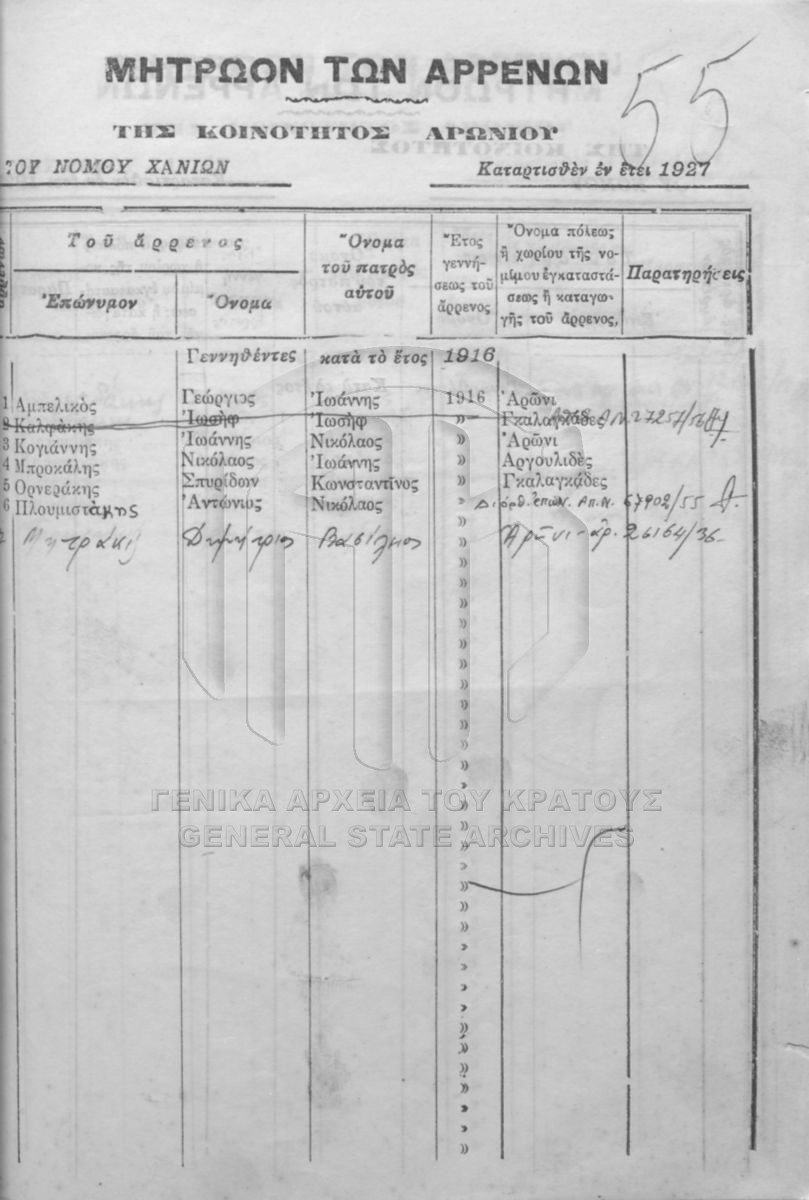 55
ΜΗΤΡΩΟΝ ΤΩΝ ΑΡΡΕΝΩΝ
ΤΗΣ ΚΟΙΝΟΤΗΤΟΣ ΑΡΩΝΙΟΥ
ΤΟΥ ΝΟΜΟΥ ΧΑΝΙΩΝ Καταρτισθὲν ἐν ἔτει 1927
Τοῦ ἄρρενος
Ἐπώνυμον Ὄνομα
Ὄνομα
τοῦ πατρὸς
αὐτοῦ
Ἔτος
γεννή-
σεως τοῦ
ἄρρενος
Ὄνομα πόλεως
ἢ χωρίου τῆς νο-
μίμου ἐγκαταστά-
σεως ἢ καταγω-
γῆς τοῦ ἄρρενος,
Παρατηρήσεις
Γεννηθέντες κατὰ τὸ ἔτος 1916
1 Αμπελικὸς Γεώργιος Ἰωάννης 1916 Ἀρῶνι
2 Καλφάκης Ἰωσὴφ Ἰωσὴφ » Γκαλαγκάδες 27257/56
3 Κογιάννης Ἰωάννης Νικόλαος » Ἀρῶνι
4 Μπροκάλης Νικόλαος Ἰωάννης » Αργουλιδὲς
5 Ορνεράκης Σπυρίδων Κωνσταντῖνος » Γκαλαγκάδες
6 Πλουμιστάκης Ἀντώνιος Νικόλαος » Διόρθ. ἐπων. Απ.Ν. 67902/55
Μητράκη Δημήτριος Βασίλειος » Ἀρῶνι - ἀρ. 26164/36
ΓΕΝΙΚΑ ΑΡΧΕΙΑ ΤΟΥ ΚΡΑΤΟΥΣ
GENERAL STATE ARCHIVES